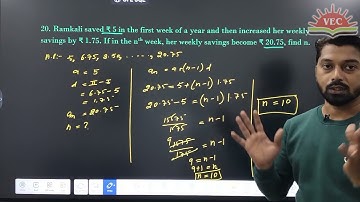 20. Ramkali saved ₹ 5 in the first week of a year and then increased her weekly
savings by ₹ 1.75. If in the nth week, her weekly savings become ₹ 20.75, find n.
VEC
5, 6.75, 8.50, ......, 20.75
a = 5
d = II - I
= 6.75 - 5
= 1.75
an = 20.75
n = ?
an = a + (n-1) d
20.75 = 5 + (n-1) 1.75
20.75 - 5 = (n-1) 1.75
15.75/1.75 = n-1
= n-1
9 = n-1
9+1 = n
n = 10
n = 10